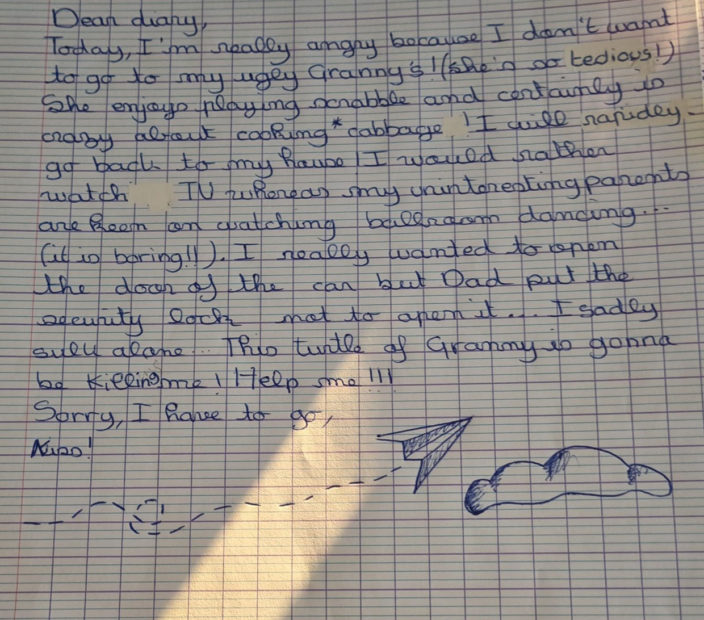 Dear diary,
Today, I'm really angry because I don't want
to go to my ugly Granny's! (she's so tedious!)
She enjoys playing scrabble and certainly is
crazy about cooking* cabbage! I will rapidly
go back to my house! I would rather
watch TV whereas my uninteresting parents
are keen on watching ballroom dancing...
(it is boring!!). I really wanted to open
the door of the car but Dad put the
security lock not to open it... I sadly
sulk alone... This turtle of Granny is gonna
be killing me! Help me!!!
Sorry, I have to go,